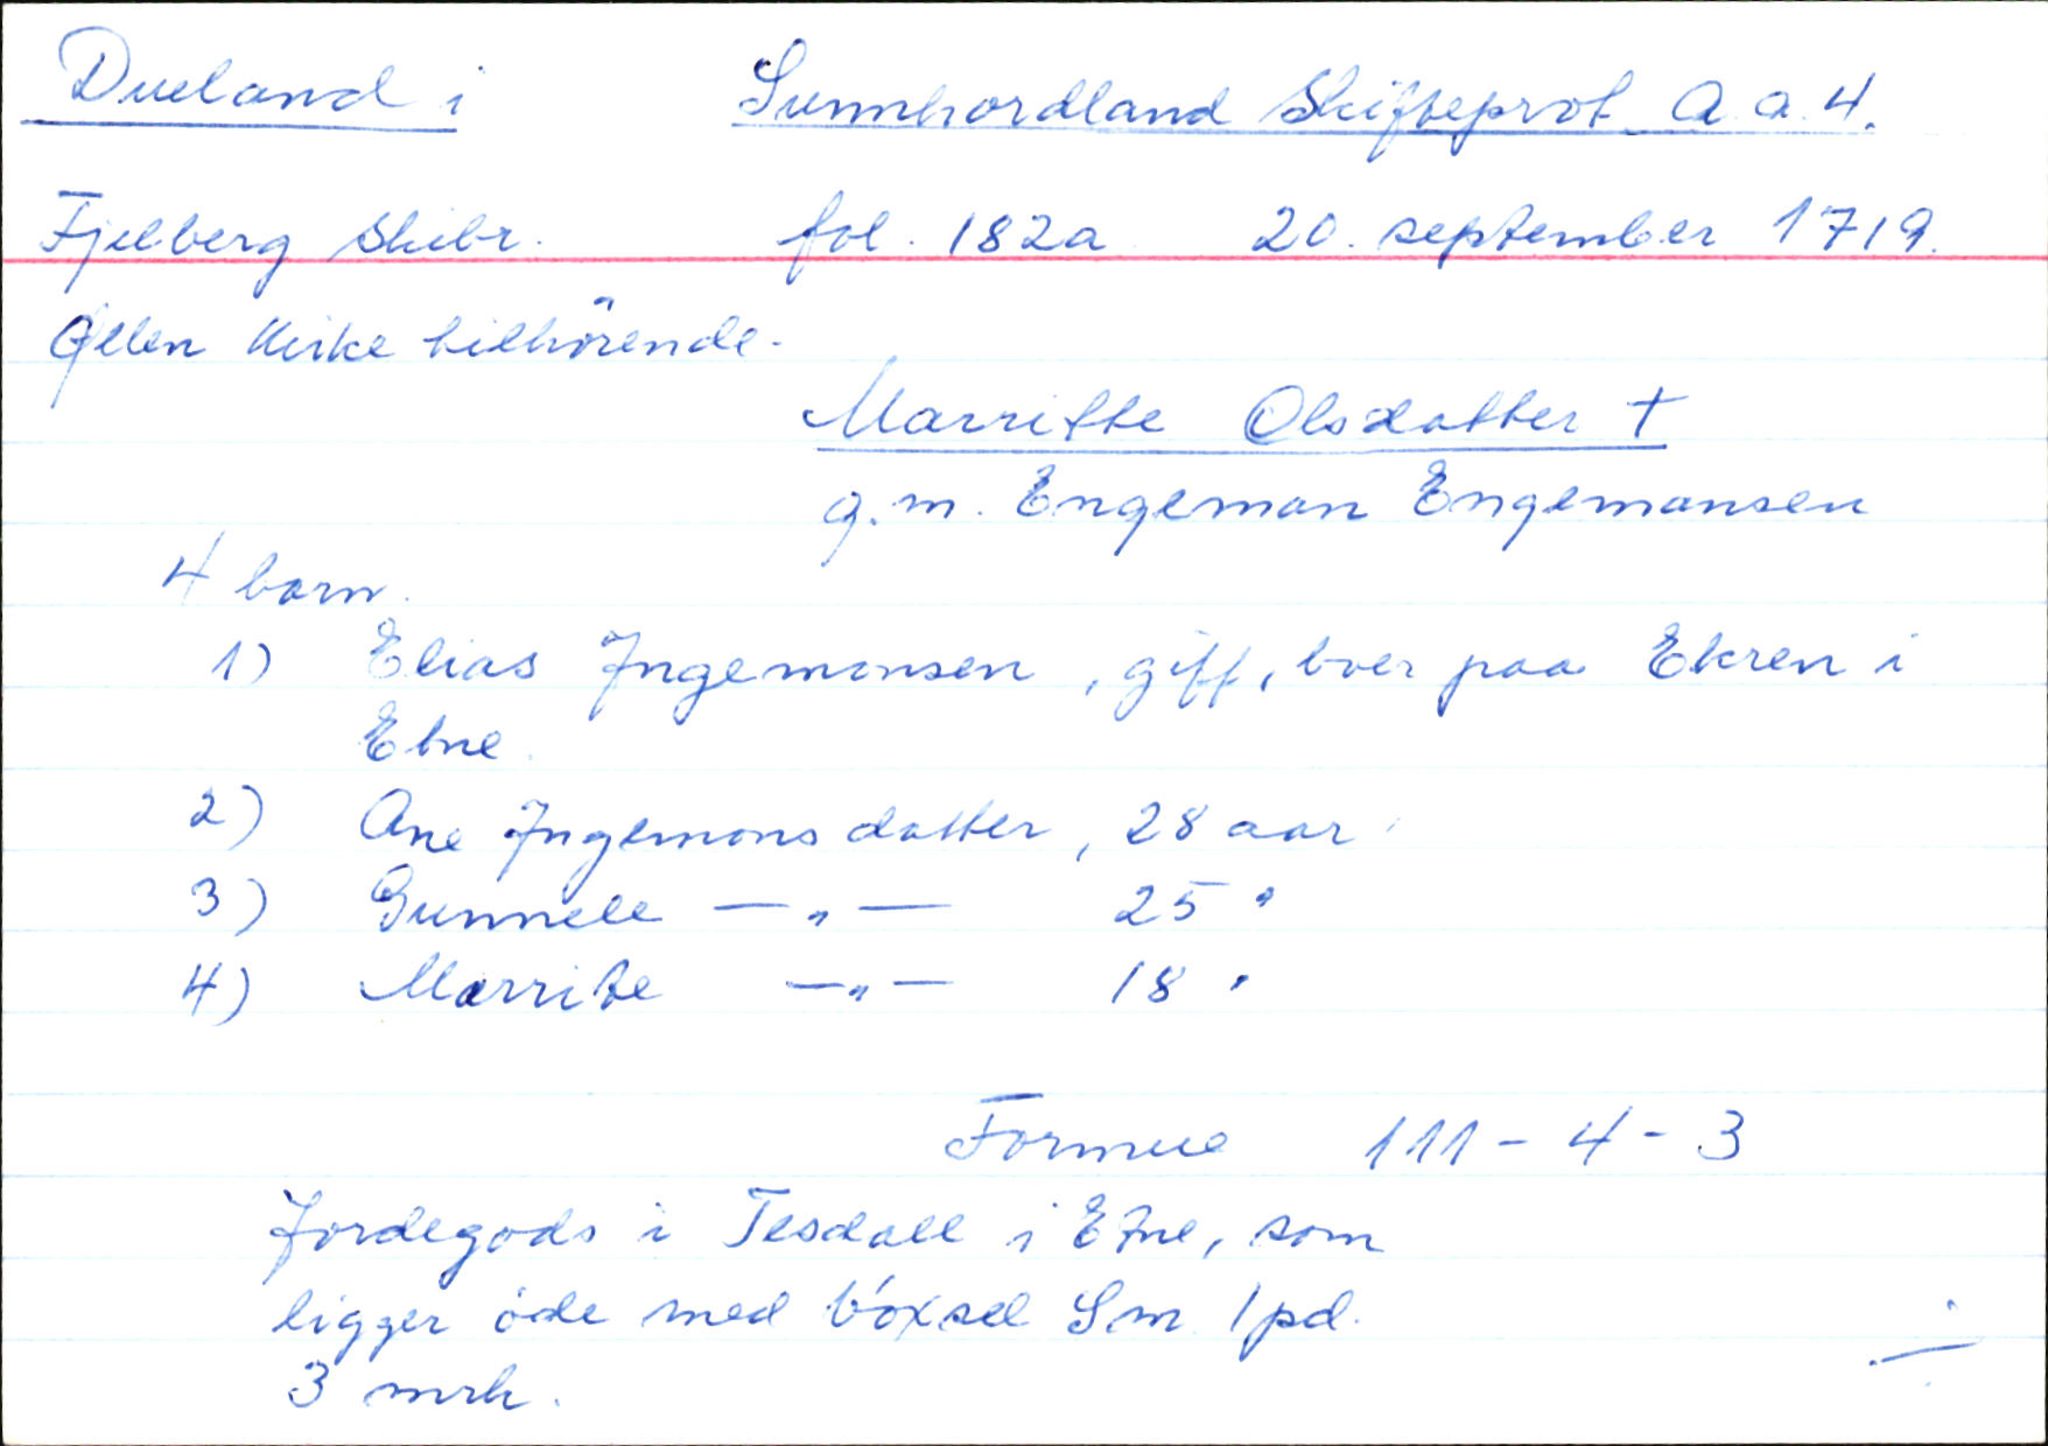 Dueland i Sunnhordland Skifteprot. A.a.4.
Fjelberg Skibr. fol. 182a 20. september 1719.
Ølen Kirke tilhörende.
Marritte Olsdatter †
g.m. Engeman Engemansen
4 barn.
1) Elias Ingemansen, gift, boer paa Ekren i
Etne.
2) Ane Ingemansdatter, 28 aar
3) Gunnele —"— 25 "
4) Marrite —"— 18 "
Formue 111 - 4 - 3
Jordegods i Tesdall i Etne, som
ligger öde med böxsel Sm. 1 pd.
3 mrk.